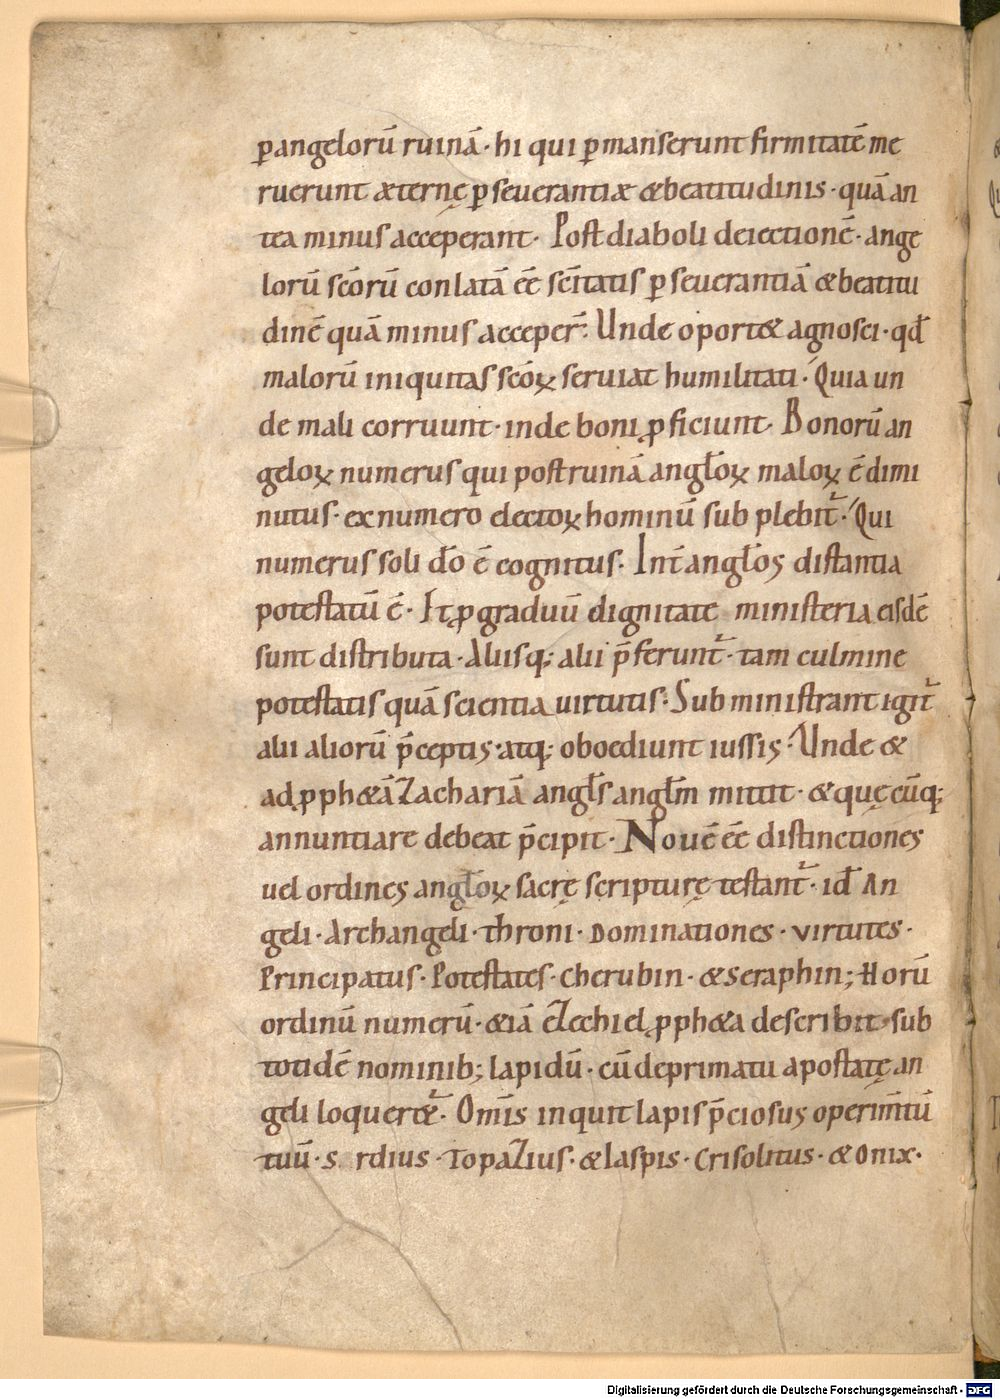 ꝑangelorū ruinā · hi qui ꝑmanserunt firmitatē me
ruerunt æternę ꝑseuerantiæ & beatitudinis · quā an
tea minus acceperant · Post diaboli deiectionē · ange
lorū sc̄orū conlatā ēē sc̄itatis ꝑseuerantiā & beatitu
dinē quā minus acceper̄ · Unde oport& agnosci · qđ
malorū iniquitas sc̄oꝝ seruiat humilitati · Quia un
de mali corruunt · inde boni ꝓficiunt · Bonorū an
geloꝝ numerus qui post ruinā angłoꝝ maloꝝ ē dimi
nutus · ex numero electoꝝ hominū sub plebit᷑ · Qui
numerus soli dō ē cognitus · Int̄ angłos distantia
potestatū ē · Et ꝓ graduū dignitate ministeria eisdē
sunt distributa · Aliisq; alii p̄ferunt᷑ · tam culmine
potestatis quā scientia uirtutis · Sub ministrant igit᷑
alii aliorū p̄ceptis · atq; oboediunt iussis · Unde &
ad ꝓph&ā Zachariā angłs angłm mittit · & quęcūq;
annuntiare debeat p̄cipit · Nouē ēē distinctiones
uel ordines angłoꝝ sacrę scripturę testant᷑ · id̄ An
geli · Archangeli · throni · Dominationes · virtutes ·
Principatus · Potestates · cherubin · & seraphin; Horū
ordinū numerū · &iā eZechiel ꝓph&a describit · sub
totidē nominib; lapidū · cū de primatu apostatę an
geli loquer&᷑ · Omīs inquit lapis p̄ciosus operim̄tū
tuū · s rdius · TopaZius · & Iaspis · Crisolitus · & Onix ·
Digitalisierung gefördert durch die Deutsche Forschungsgemeinschaft - DFG